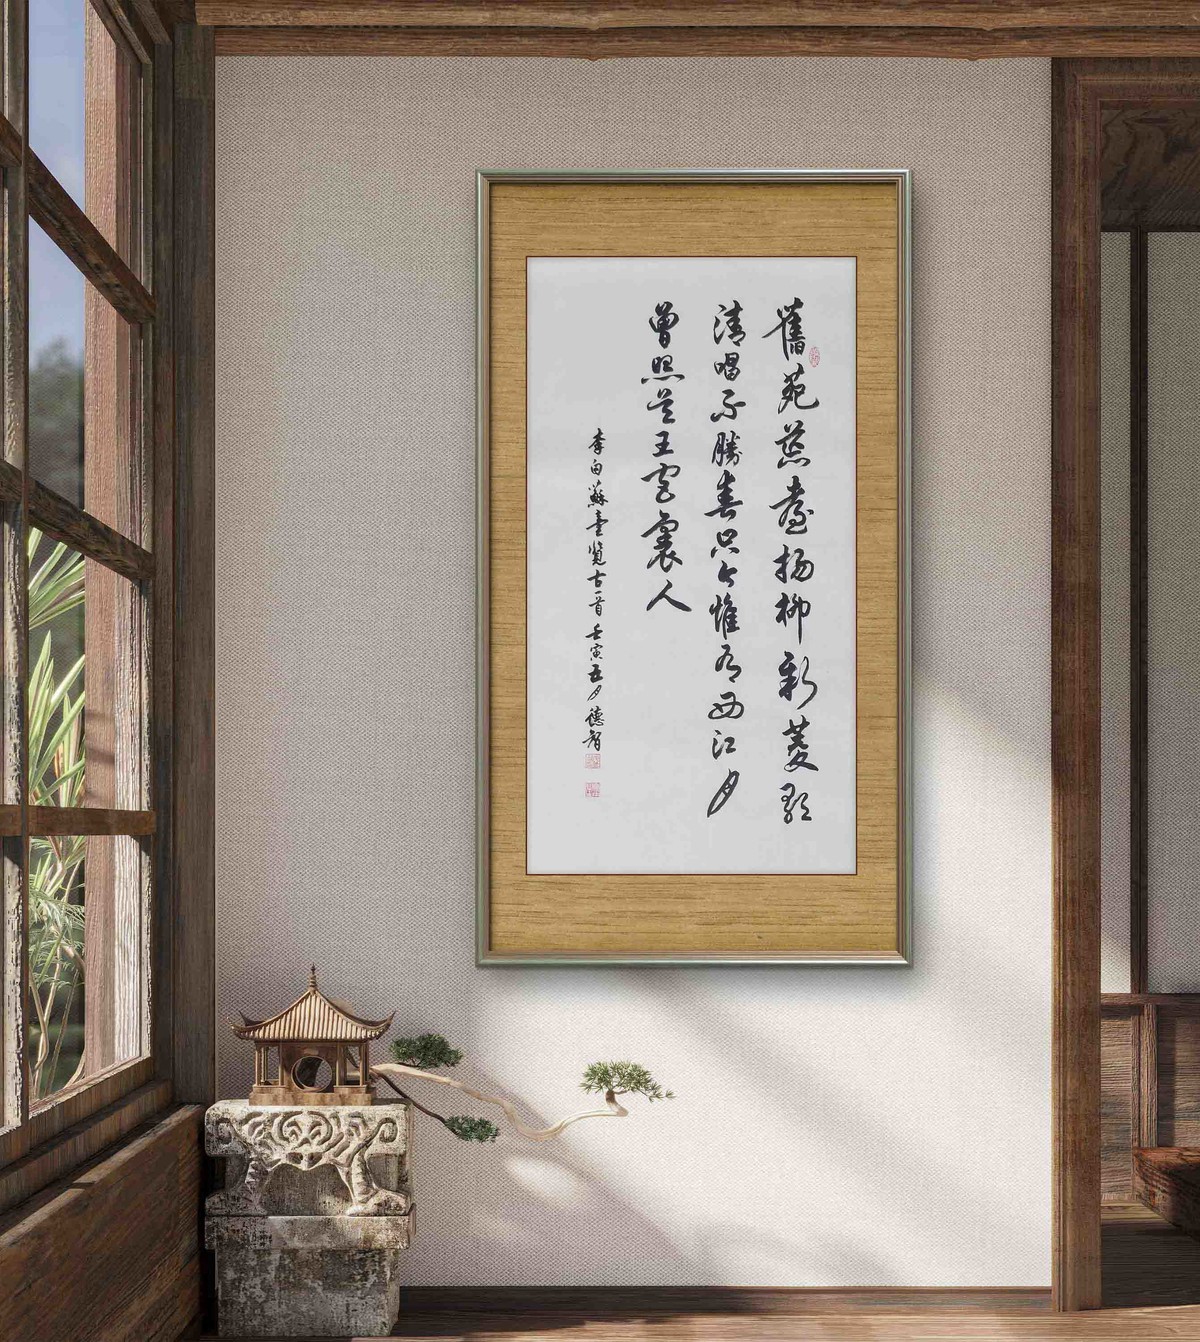 舊苑荒臺楊柳新菱歌
清唱不勝春只今惟有西江月
曾照吴王宫裏人
李白蘇臺覽古一首壬寅五月德智